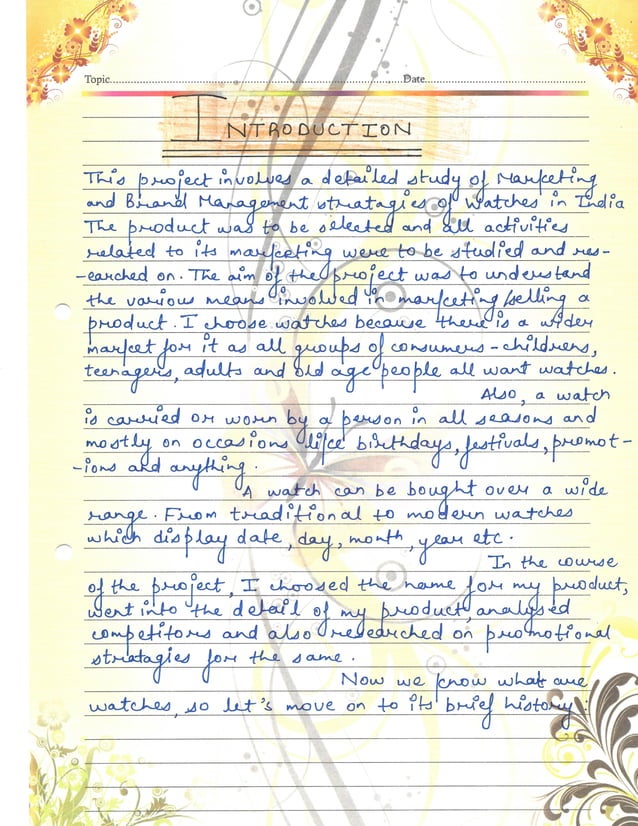 Topic.....................................................Date.....................................
INTRODUCTION
This project involves a detailed study of Marketing
and Brand Management stratagies of watches in India
The product was to be selected and all activities
related to its marketing were to be studied and res-
-earched on. The aim of the project was to understand
the various means involved in marketing/selling a
product. I choose watches because there is a wider
market for it as all groups of consumers - childrens,
teenagers, adults and old age people all want watches.
Also, a watch
is carried or worn by a person in all seasons and
mostly on occasions like birthdays, festivals, promot-
-ions and anything.
A watch can be bought over a wide
range. From traditional to modern watches
which display date, day, month, year etc.
In the course
of the project, I choosed the name for my product,
went into the detail of my product, analysed
competitors and also researched on promotional
stratagies for the same.
Now we know what are
watches, so let's move on to its brief history: